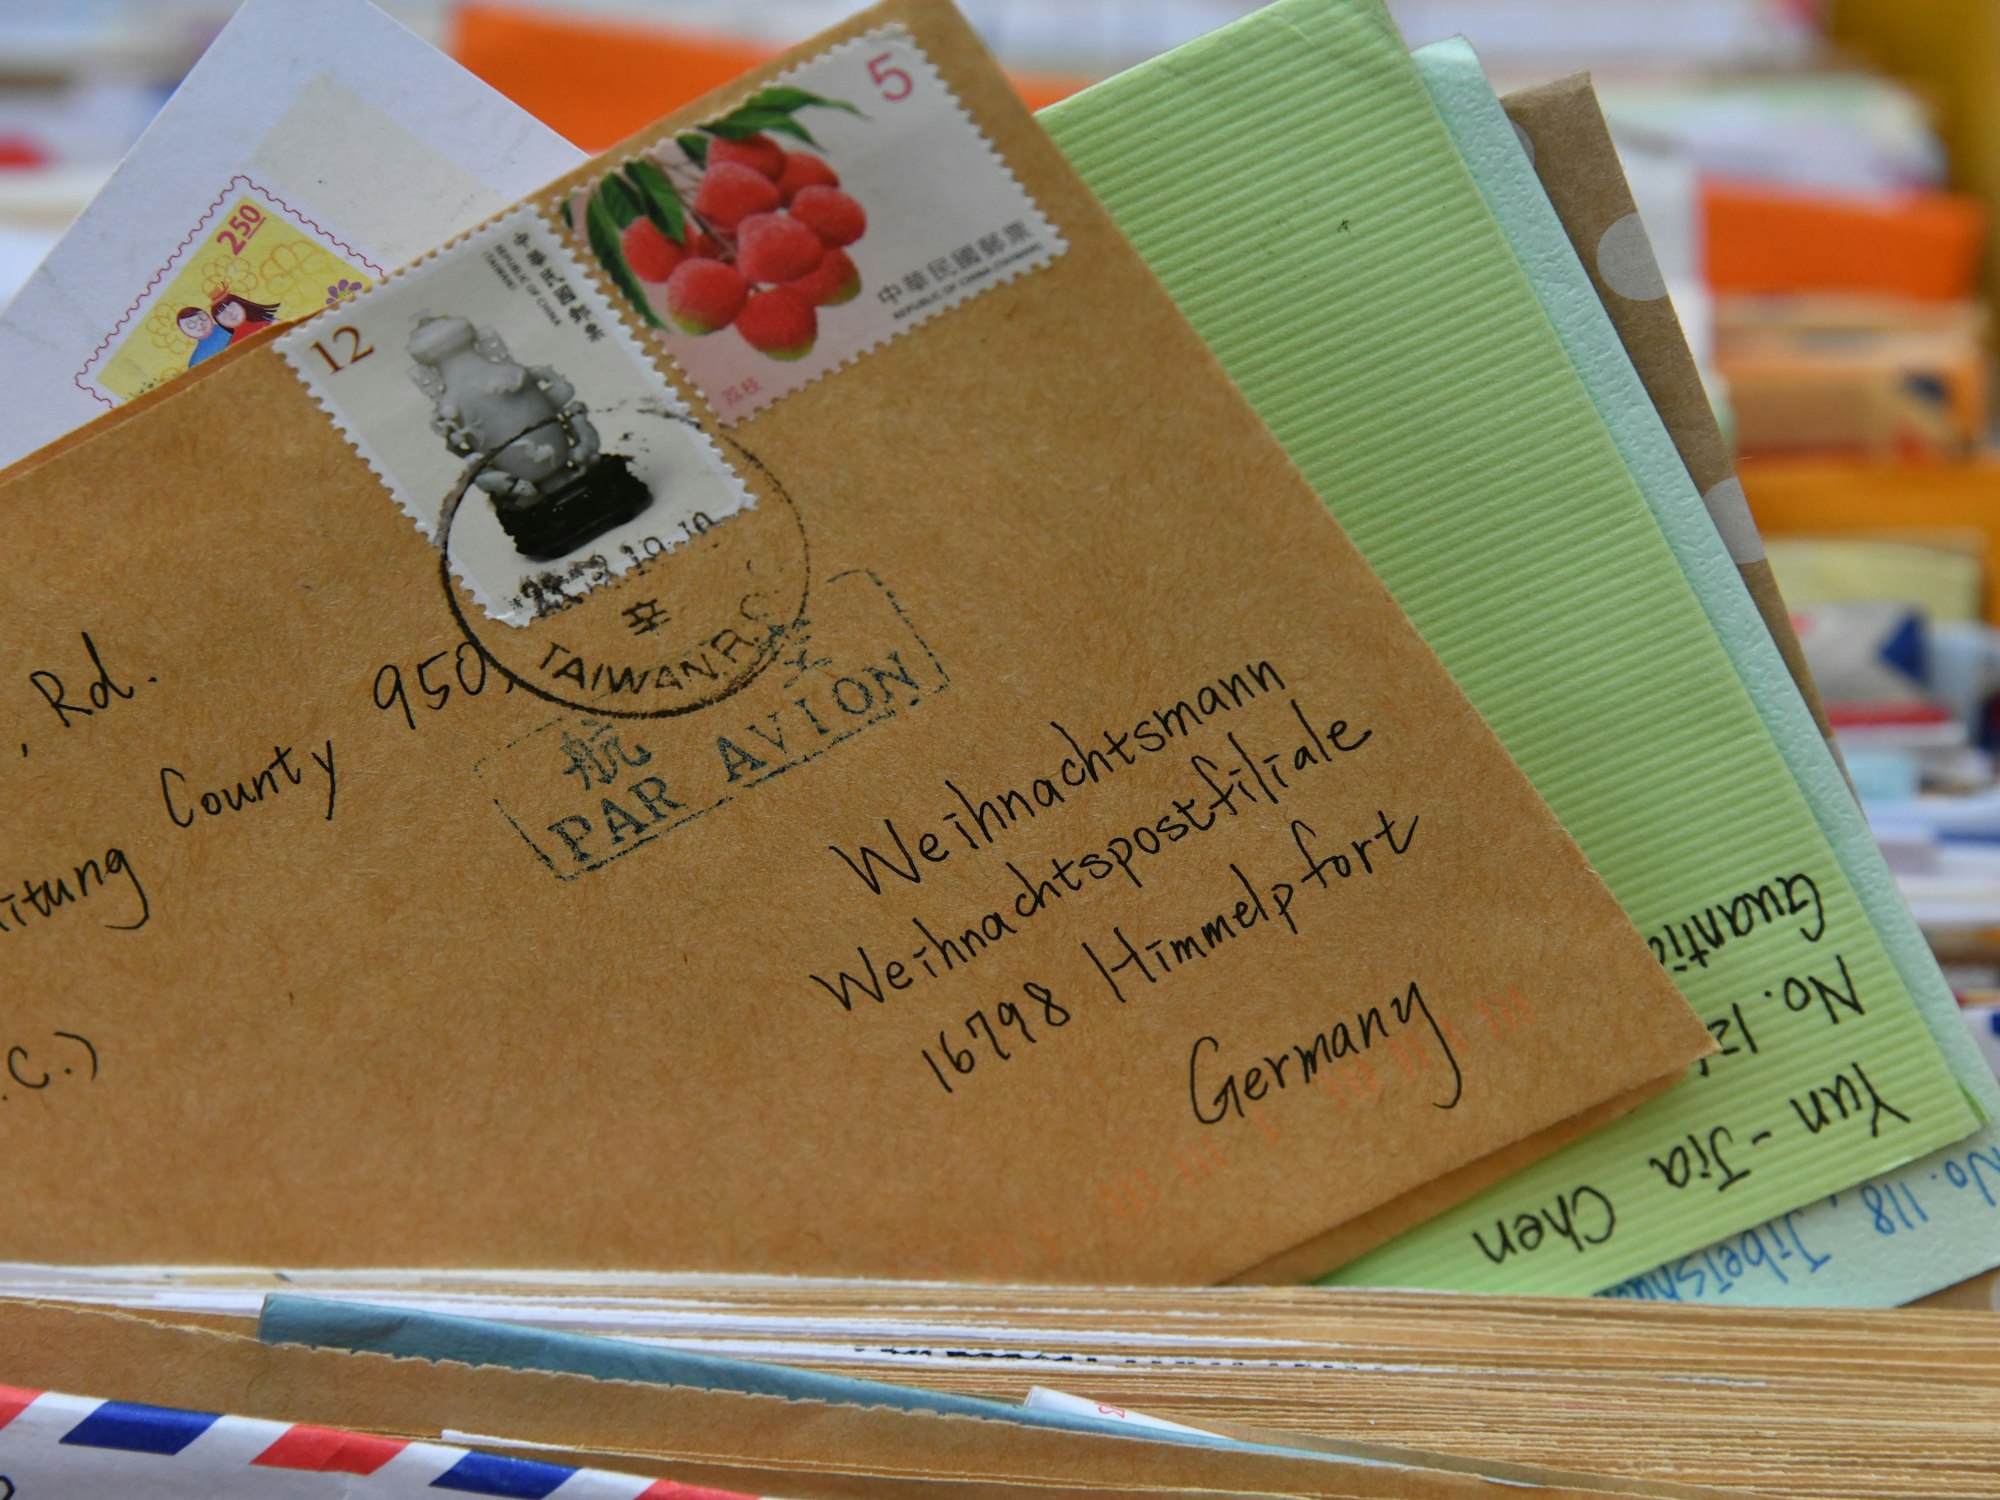 250
12
中華民國郵票
REPUBLIC OF CHINA
(TAIWAN)
5
中華民國郵票
REPUBLIC OF CHINA (TAIWAN)
荔枝
19.10
TAIWAN R.O.C.
航空
PAR AVION
, Rd.
County 950,
itung
.C.)
Weihnachtsmann
Weihnachtspostfiliale
16798 Himmelpfort
Germany
Yun-Jia Chen
No.
No. 118,